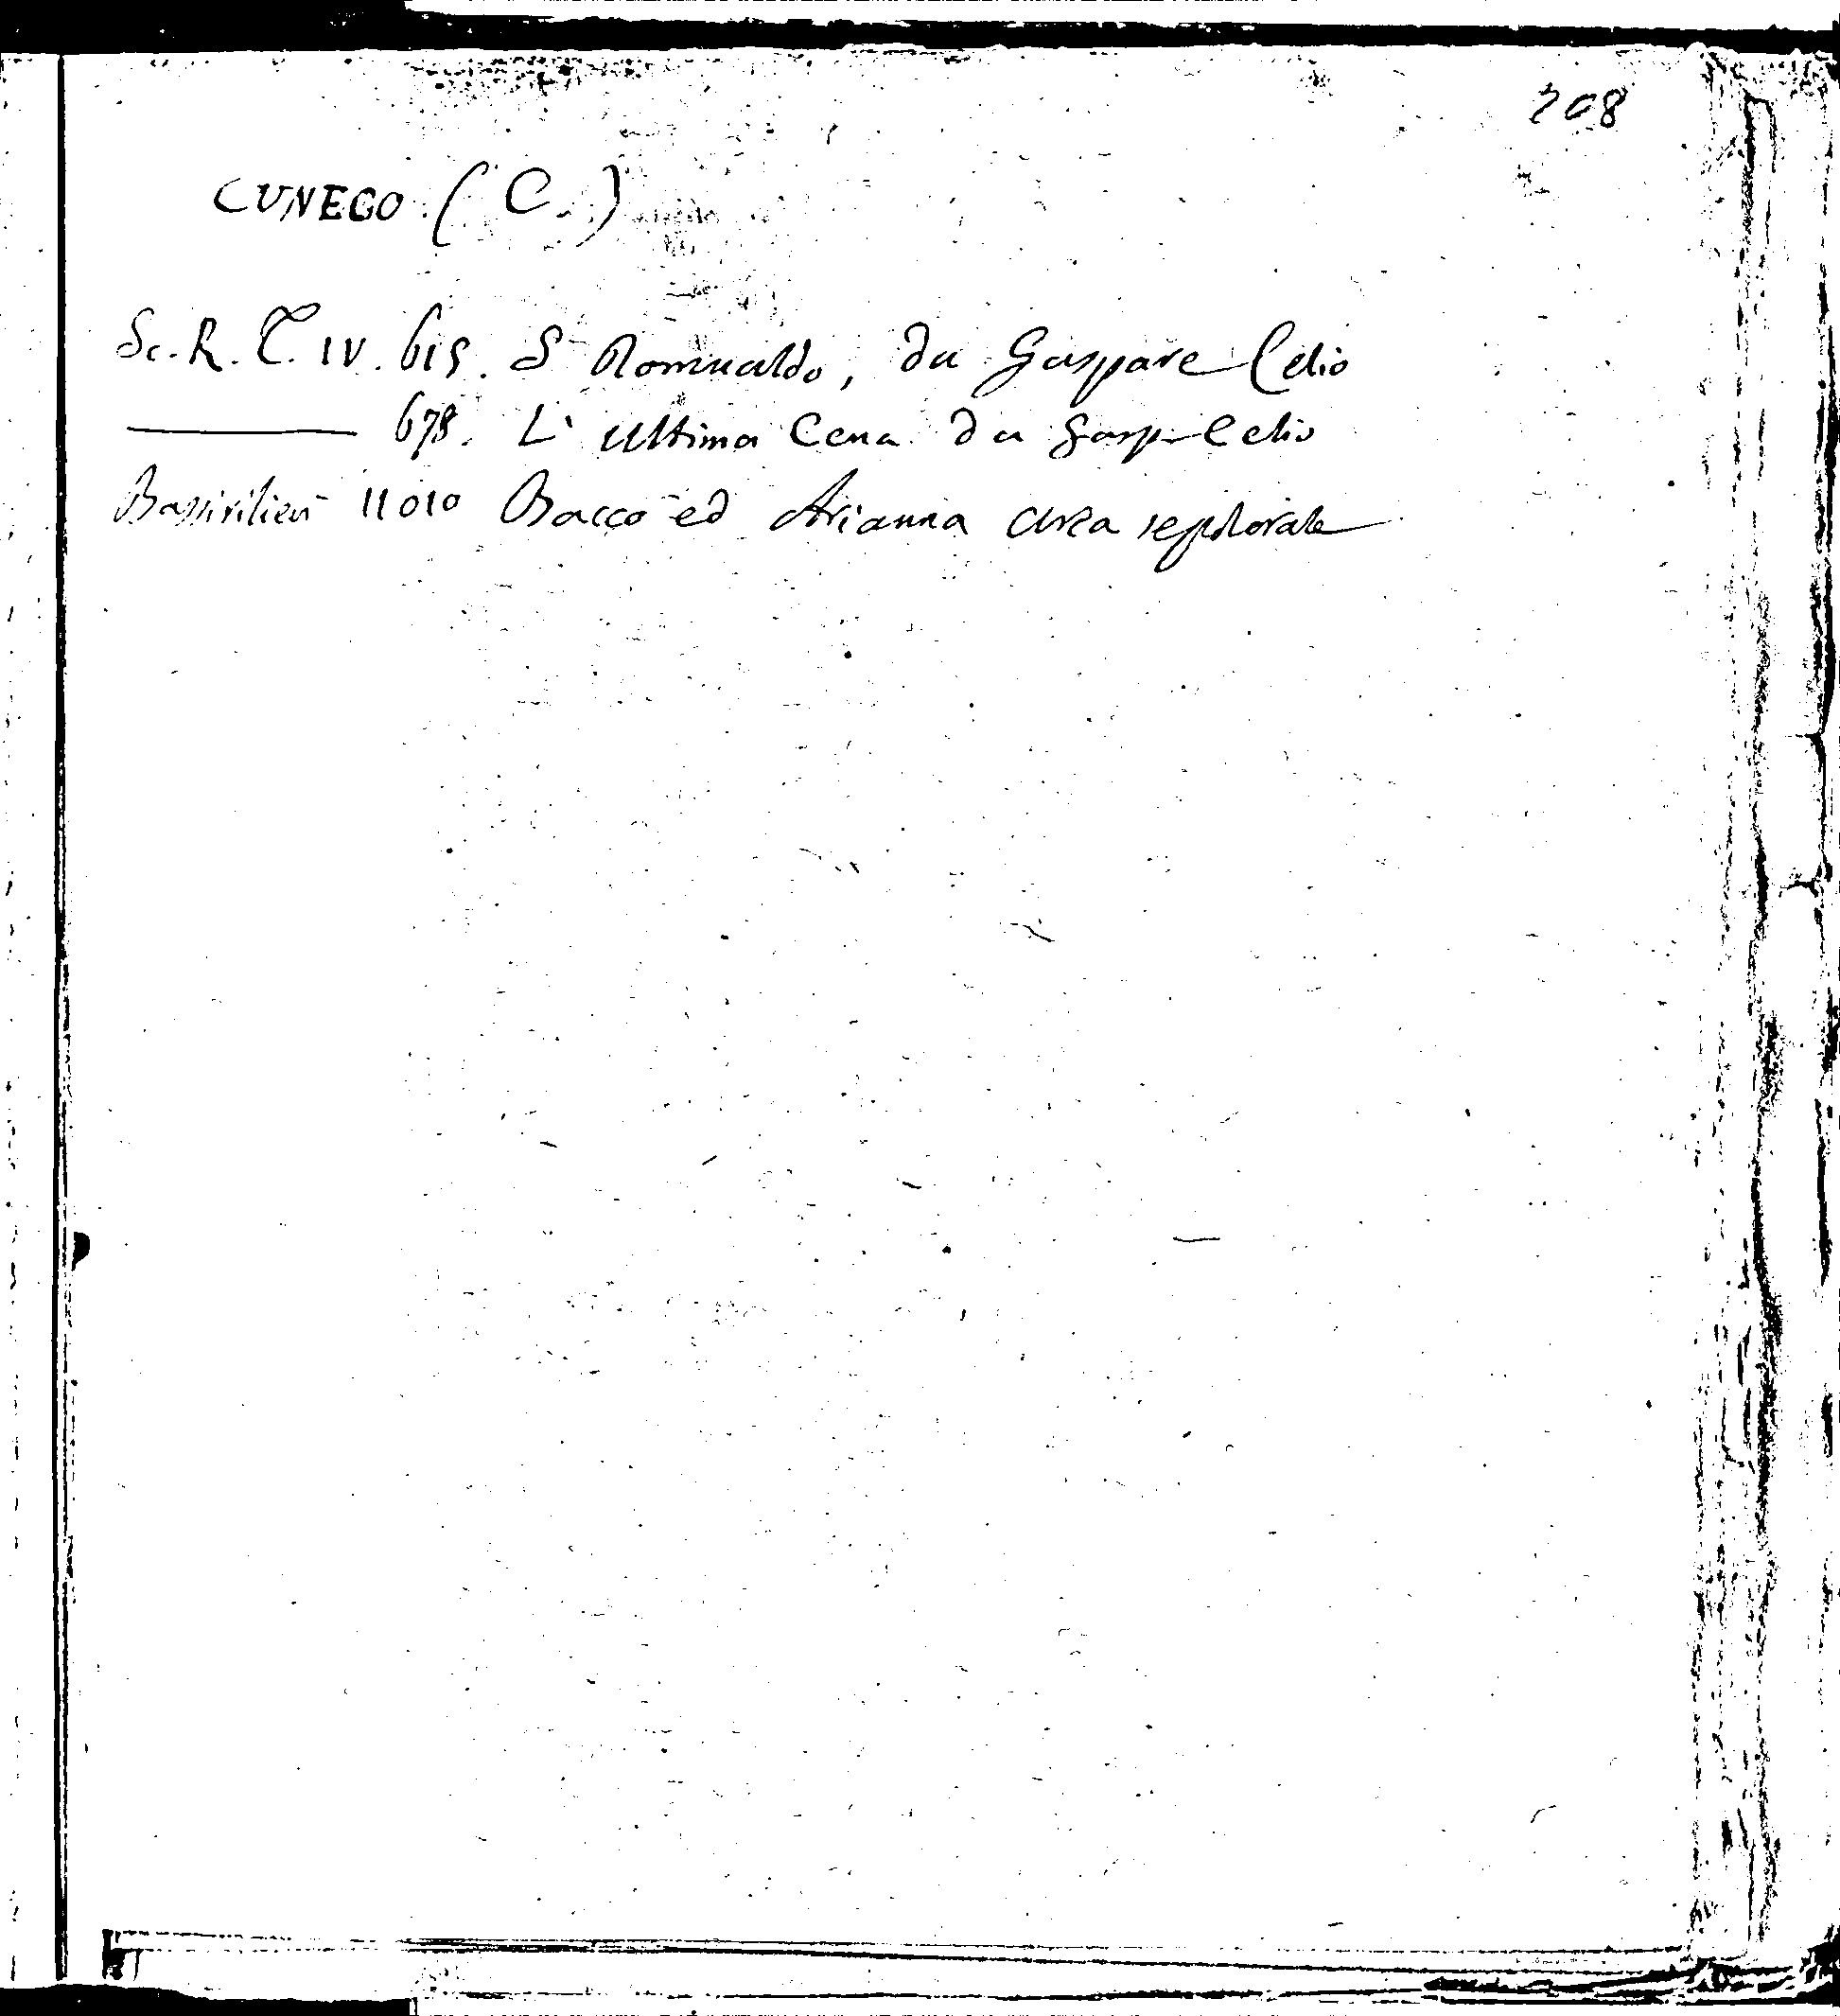 208
CUNEGO. (C.)
Sc. R. T. IV. 615. S Romualdo, da Gaspare Celio
——— 678. L'ultima Cena da Gasp Celio
Bassirilievi 11010 Bacco ed Arianna Urna sepolcrale